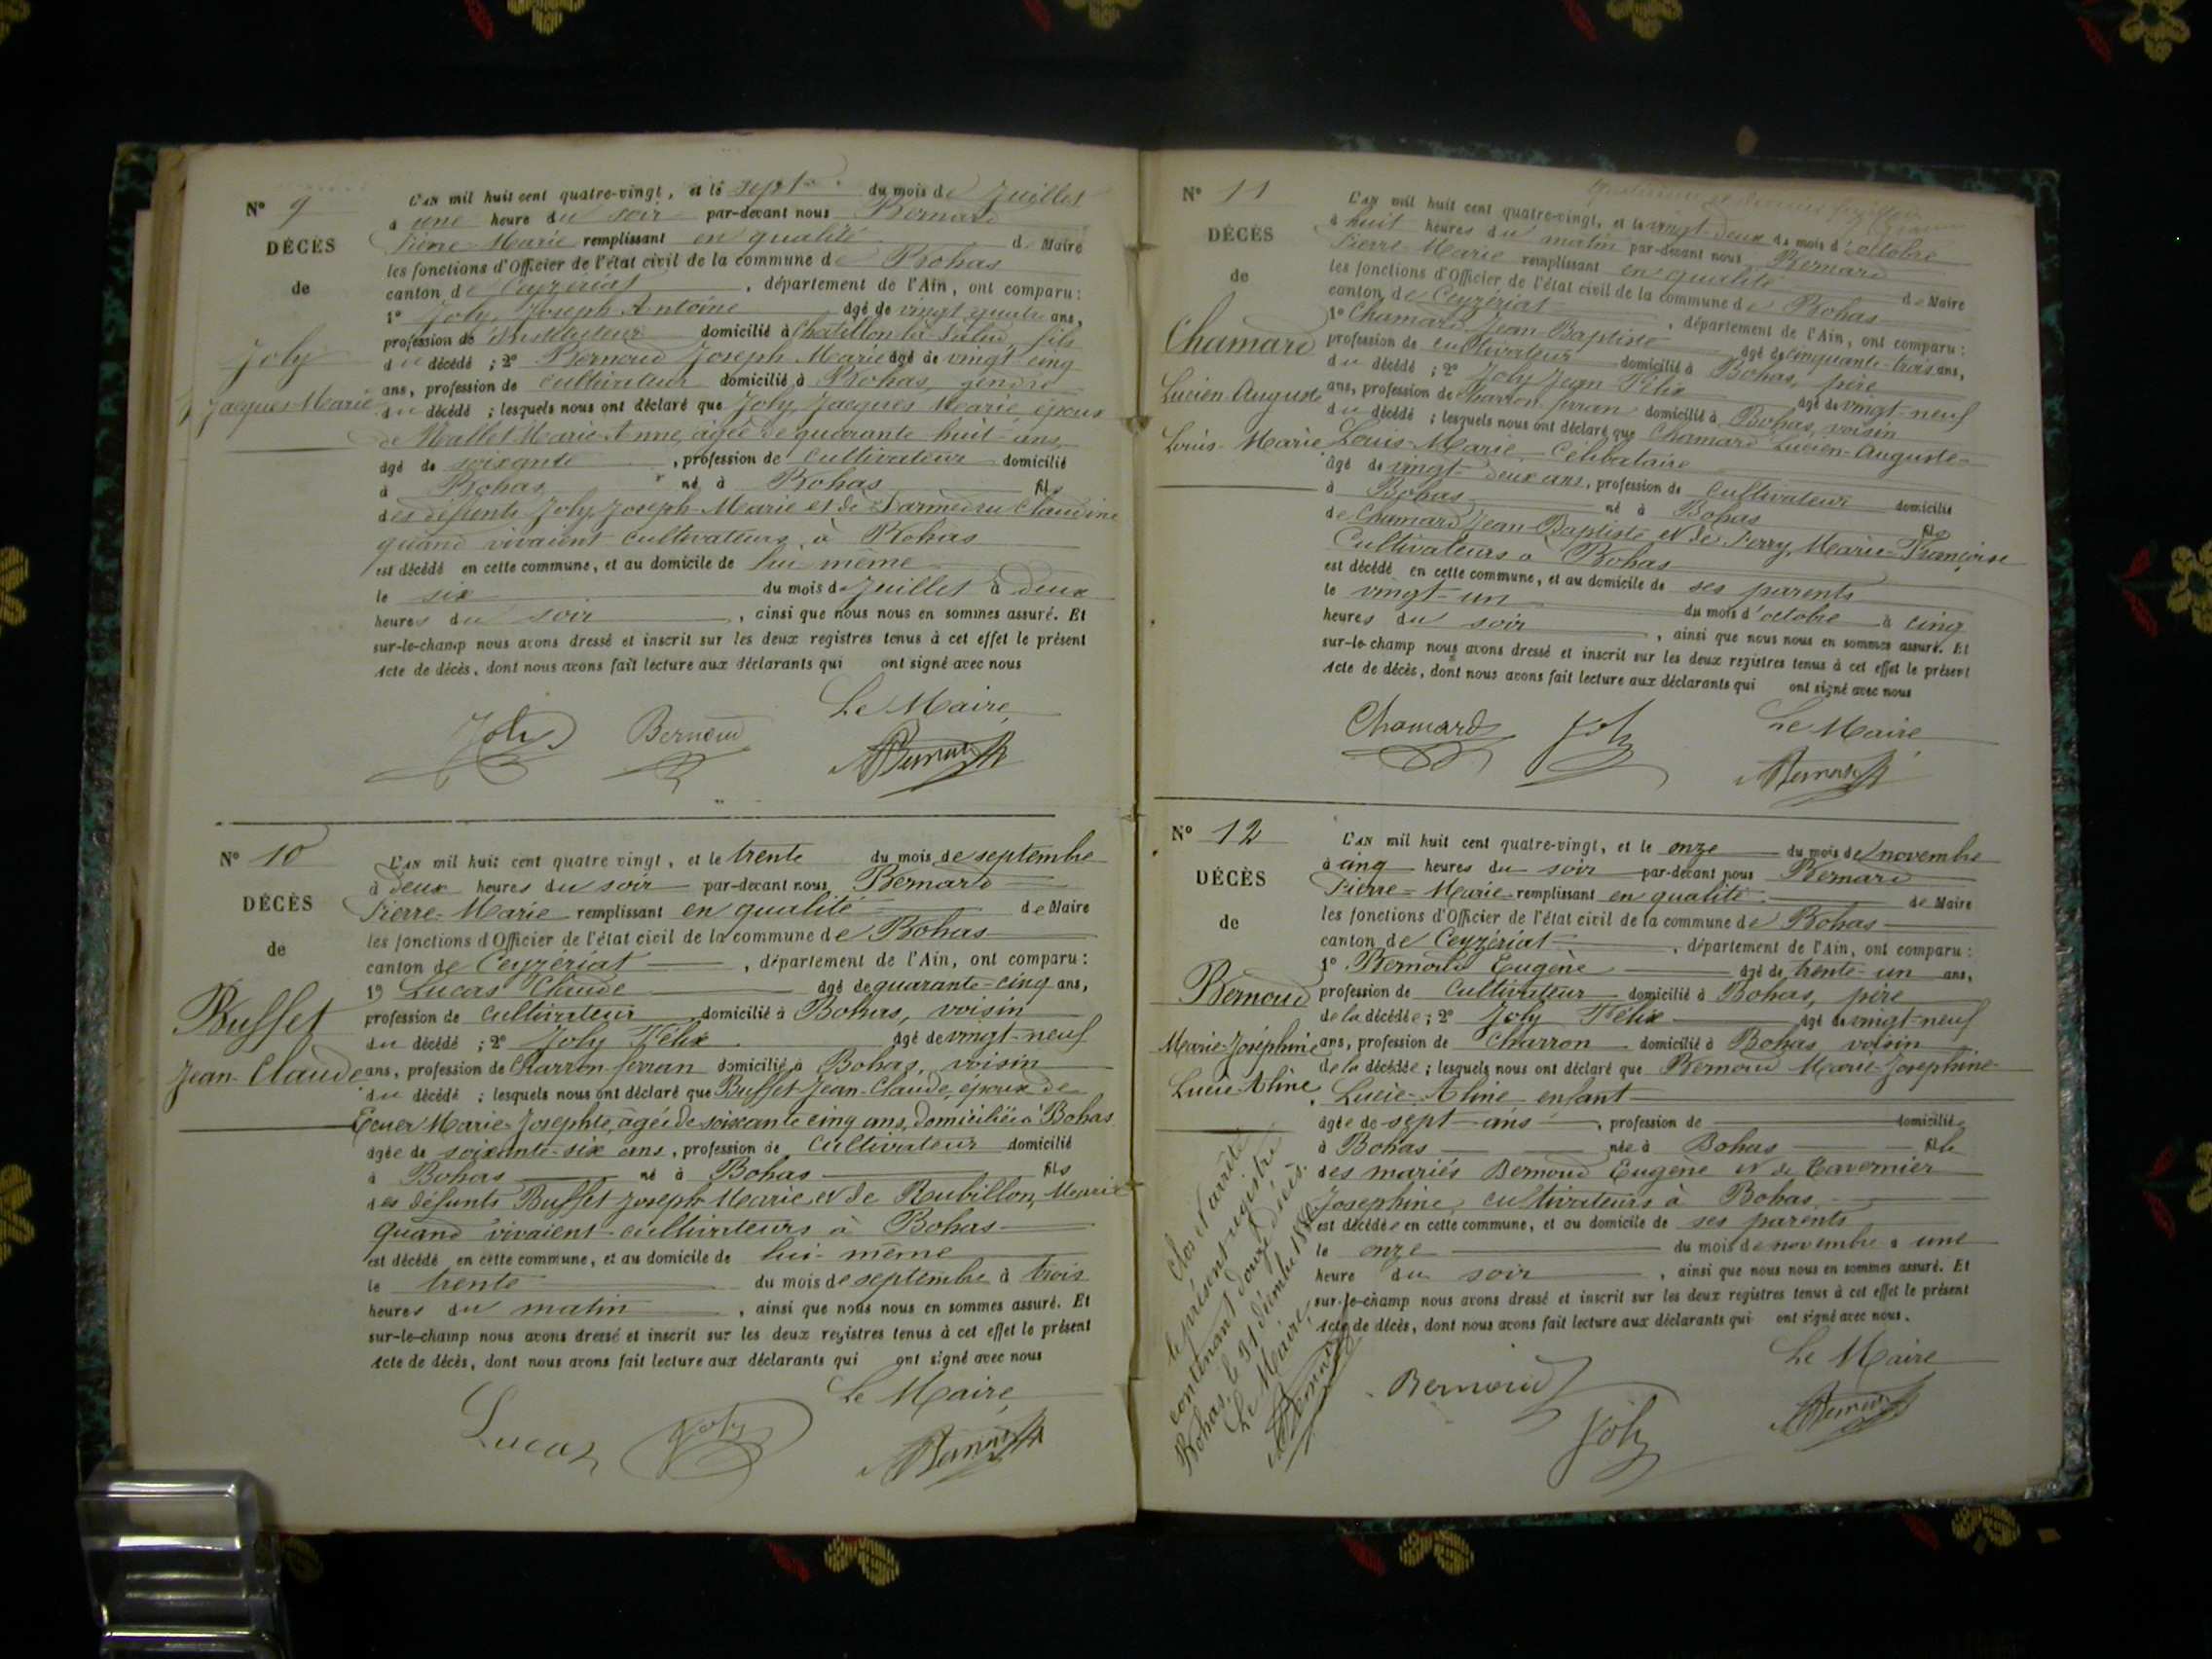 N° 9
DÉCÈS
de
Joly
Jacques Marie
L'AN mil huit cent quatre-vingt, et le sept du mois de Juillet
à une heure du soir par-devant nous Bernard
Pierre-Marie remplissant en qualité de Maire
les fonctions d'Officier de l'état civil de la commune de Bohas
canton de Ceyzériat, département de l'Ain, ont comparu :
1° Joly, Joseph Antoine âgé de vingt quatre ans,
profession de Instituteur domicilié à Chatillon la Palud, fils
du décédé ; 2° Bernoud Joseph Marie âgé de vingt cinq
ans, profession de cultivateur domicilié à Bohas, gendre
du décédé ; lesquels nous ont déclaré que Joly, Jacques Marie époux
de Mallet Marie Anne, agée de quarante huit ans,
âgé de soixante, profession de cultivateur domicilié
à Bohas né à Bohas fils
des défunts Joly, Joseph Marie et de Claudine
quand vivaient cultivateurs à Bohas
est décédé en cette commune, et au domicile de lui même
le six du mois de Juillet à deux
heures du soir, ainsi que nous nous en sommes assuré. Et
sur-le-champ nous avons dressé et inscrit sur les deux registres tenus à cet effet le présent
acte de décès, dont nous avons fait lecture aux déclarants qui ont signé avec nous
Le Maire
Joly Bernoud Bernard
N° 10
DÉCÈS
de
Buffet
Jean-Claude
L'AN mil huit cent quatre vingt, et le trente du mois de septembre
à deux heures du soir par-devant nous Bernard
Pierre-Marie remplissant en qualité de Maire
les fonctions d'Officier de l'état civil de la commune de Bohas
canton de Ceyzériat, département de l'Ain, ont comparu :
1° Lucas Claude âgé de quarante-cinq ans,
profession de cultivateur domicilié à Bohas, voisin
du décédé ; 2° Joly Félix âgé de vingt-neuf
ans, profession de Charron-ferran domicilié à Bohas, voisin
du décédé ; lesquels nous ont déclaré que Buffet Jean-Claude, époux de
Ecuer Marie-Josephte, agée de soixante cinq ans, domiciliée à Bohas
âgée de soixante-six ans, profession de cultivateur domicilié
à Bohas né à Bohas fils
des défunts Buffet Joseph Marie et de Rubillon, Marie
quand vivaient cultivateurs à Bohas
est décédé en cette commune, et au domicile de lui-même
le trente du mois de septembre à trois
heures du matin, ainsi que nous nous en sommes assuré. Et
sur-le-champ nous avons dressé et inscrit sur les deux registres tenus à cet effet le présent
acte de décès, dont nous avons fait lecture aux déclarants qui ont signé avec nous
Le Maire,
Lucas Joly Bernard
N° 11
DÉCÈS
de
Chamard
Lucien-Auguste
Louis-Marie
L'AN mil huit cent quatre-vingt, et le vingt-deux du mois d'octobre
à huit heures du matin par-devant nous Bernard
Pierre-Marie remplissant en qualité de Maire
les fonctions d'Officier de l'état civil de la commune de Bohas
canton de Ceyzériat, département de l'Ain, ont comparu :
1° Chamard Jean-Baptiste âgé de cinquante-trois ans,
profession de cultivateur domicilié à Bohas, père
du décédé ; 2° Joly Jean-Félix âgé de vingt-neuf
ans, profession de Charron-ferran domicilié à Bohas, voisin
du décédé ; lesquels nous ont déclaré que Chamard Lucien-Auguste-
Louis-Marie Célibataire
âgé de vingt-deux ans, profession de cultivateur domicilié
à Bohas né à Bohas fils
de Chamard Jean-Baptiste et de Perry, Marie-Françoise
Cultivateurs à Bohas
est décédé en cette commune, et au domicile de ses parents
le vingt-un du mois d'octobre à cinq
heures du soir, ainsi que nous nous en sommes assuré. Et
sur-le-champ nous avons dressé et inscrit sur les deux registres tenus à cet effet le présent
acte de décès, dont nous avons fait lecture aux déclarants qui ont signé avec nous
Le Maire
Chamard Joly Bernard
N° 12
DÉCÈS
de
Bernoud
Marie-Joséphine
Lucie-Aline
L'AN mil huit cent quatre-vingt, et le onze du mois de novembre
à cinq heures du soir par-devant nous Bernard
Pierre-Marie remplissant en qualité de Maire
les fonctions d'Officier de l'état civil de la commune de Bohas
canton de Ceyzériat, département de l'Ain, ont comparu :
1° Bernoud Eugène âgé de trente-un ans,
profession de cultivateur domicilié à Bohas, père
de la décédée ; 2° Joly Félix âgé de vingt-neuf
ans, profession de Charron domicilié à Bohas voisin
de la décédée ; lesquels nous ont déclaré que Bernoud Marie-Josephine-
Lucie-Aline enfant
âgée de sept ans, profession de domicilié
à Bohas née à Bohas fille
des mariés Bernoud Eugène et de Tavernier
Josephine, cultivateurs à Bohas
est décédée en cette commune, et au domicile de ses parents
le onze du mois de novembre à une
heure du soir, ainsi que nous nous en sommes assuré. Et
sur-le-champ nous avons dressé et inscrit sur les deux registres tenus à cet effet le présent
acte de décès, dont nous avons fait lecture aux déclarants qui ont signé avec nous.
Le Maire
Bernoud Joly Bernard
Clos et arrêté
le présent registre
contenant douze décès.
Bohas, le 31 décembre 1880
Le Maire,
Bernard